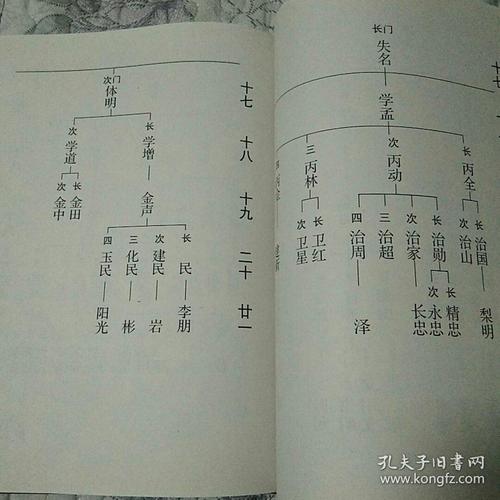 长门
失名
学孟
长
丙全
次
丙动
三
丙林
长
治国
次
治山
长
治勋
次
治家
三
治超
四
治周
长
卫红
次
卫星
梨明
长
精忠
次
永忠
长忠
泽
十七
十八
十九
二十
廿一
次门
体明
长
学增
次
学道
金声
长
金田
次
金中
长
民
次
建民
三
化民
四
玉民
李朋
岩
彬
阳光
孔夫子旧书网
www.kongfz.com